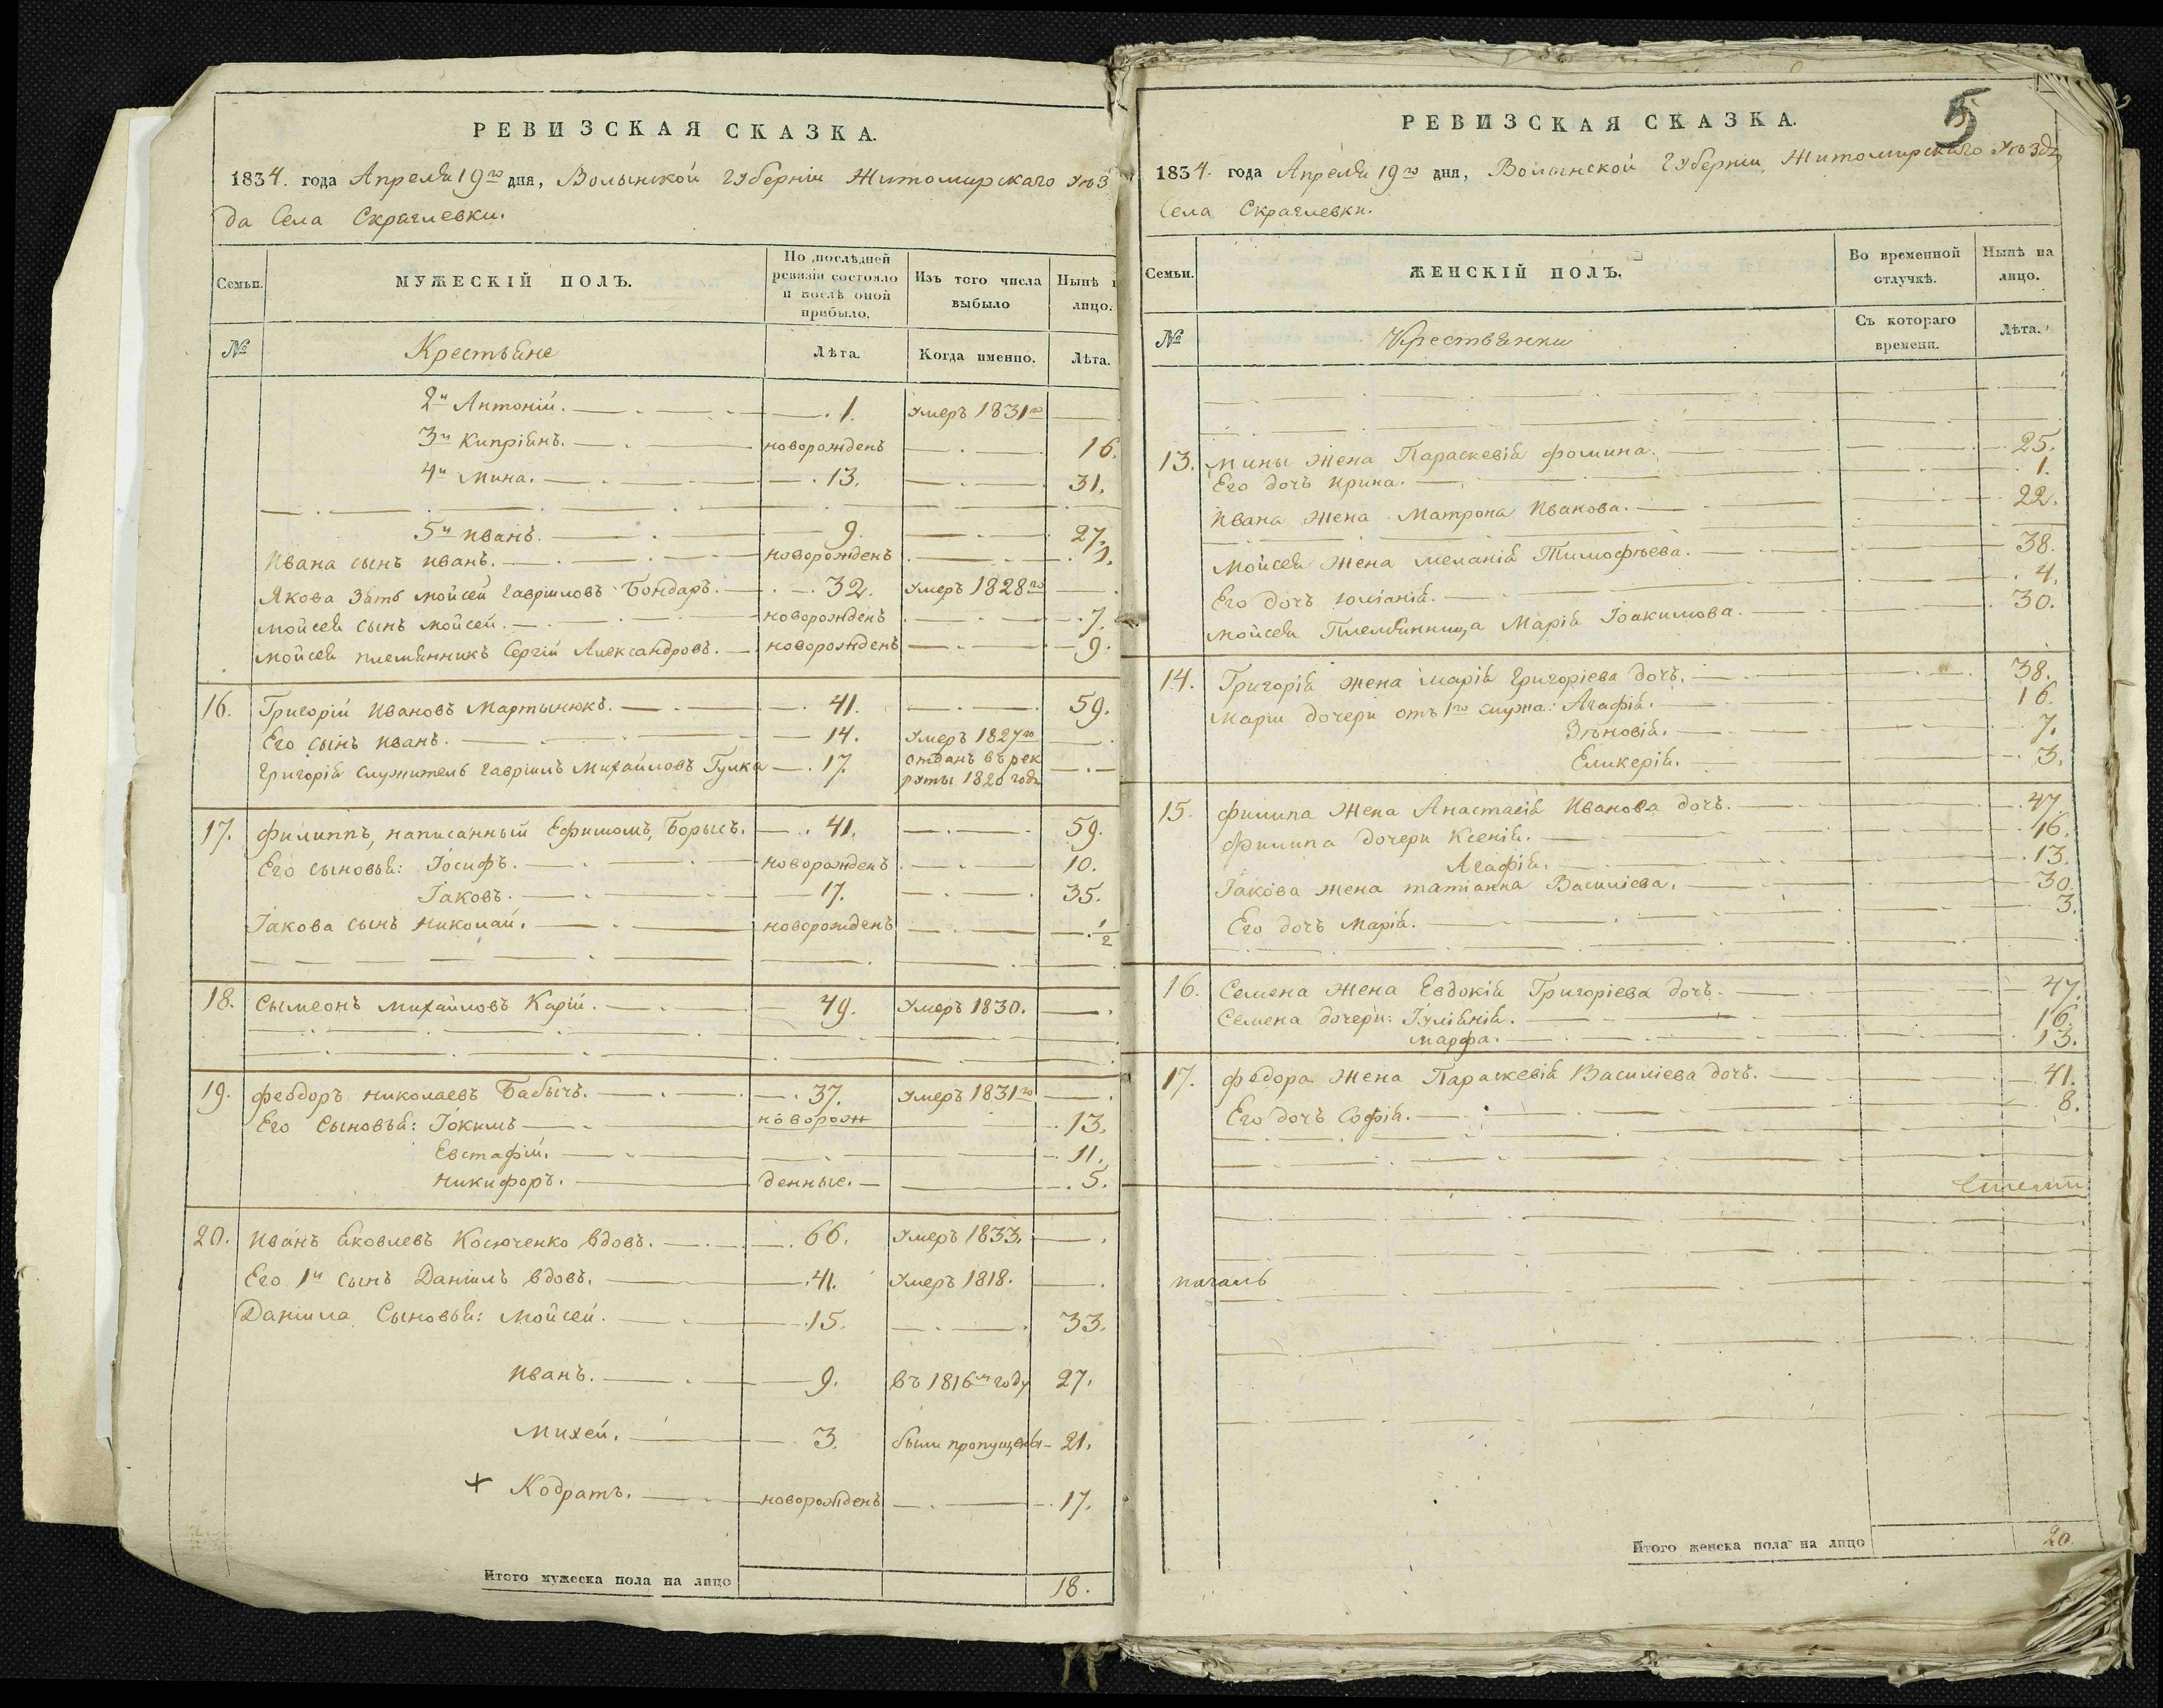 РЕВИЗСКАЯ СКАЗКА.
1834. года Апреля 19го дня, Волынской Губернiи Житомирскаго Уѣз
да Села Скраглевки.
Семьи.
МУЖЕСКІЙ ПОЛЪ.
По послѣдней ревизіи состояло и послѣ оной прибыло.
Изъ того числа выбыло
Нынѣ
лицо.
№
Крестьяне
Лѣта.
Когда именно.
Лѣта.
2й Антонiй. 1. умеръ 1831го
3й Кипрiянъ. новорожденъ 16.
4й Мина. 13. 31.
5й Иванъ. 9. 27.
Ивана сынъ Иванъ. новорожденъ 1.
Якова зять Мойсей Гаврiиловъ Бондаръ. 32. умеръ 1828го
Мойсея сынъ Мойсей. новорожденъ 7.
Мойсея племянникъ Сергiй Александровъ. новорожденъ 9.
16. Григорiй Ивановъ Мартынюкъ. 41. 59.
Его сынъ Иванъ. 14. умеръ 1827го
Григорiя служитель Гаврiилъ Михайловъ Гулка 17. отданъ въ рек
руты 1820 года
17. Филиппъ, написанный Ефимомъ, Борысъ. 41. 59.
Его сыновья: Iосифъ. новорожденъ 10.
Iаковъ. 17. 35.
Iакова сынъ Николай. новорожденъ 1/2
18. Сымеонъ Михайловъ Карiй. 49. Умеръ 1830.
19. Феодоръ Николаевъ Бабычъ. 37. умеръ 1831го
Его Сыновья: Iокимъ новорож 13.
Евстафiй. 11.
Никифоръ. денные. 5.
20. Иванъ Яковлевъ Косюченко вдовъ. 66. Умеръ 1833.
Его 1й сынъ Данiилъ вдовъ. 41. Умеръ 1818.
Данiила Сыновья: Мойсей. 15. 33.
Иванъ. 9. въ 1816м году 27.
Михей. 3. были пропущены 21.
+ Кодратъ. новорожденъ 17.
Итого мужеска пола на лицо 18.
РЕВИЗСКАЯ СКАЗКА.
5
1834. года Апреля 19го дня, Волынской Губернiи, Житомирскаго Уѣзда
Села Скраглевки.
Семьи.
ЖЕНСКІЙ ПОЛЪ.
Во временной отлучкѣ.
Нынѣ на лицо.
№
Крестьянки
Съ котораго времени.
Лѣта.
13. Мины жена Параскевiя Фомина. 25.
Его дочь Ирина. 1.
Ивана жена Матрона Иванова. 22.
Мойсея жена Меланiя Тимофѣева. 38.
Его дочь Юлiанiя. 4.
Мойсея Племянница Марiя Iоакимова. 30.
14. Григорiя жена Марiя Григорiева дочь. 38.
Марiи дочери отъ 1го мужа: Агафiя. 16.
Зѣновiя. 7.
Гликерiя. 3.
15. Филипа Жена Анастасiя Иванова дочь. 47.
Филипа дочери Ксенiя. 16.
Агафiя. 13.
Iакова жена татiанна Василiева. 30.
Его дочь Марiя. 3.
16. Семена жена Евдокiя Григорiева дочь. 47.
Семена дочери: Iулiянiя. 16.
Марфа. 13.
17. Федора Жена Параскевiя Василiева дочь. 41.
Его дочь Софiя. 8.
Итого женска пола на лицо 20.